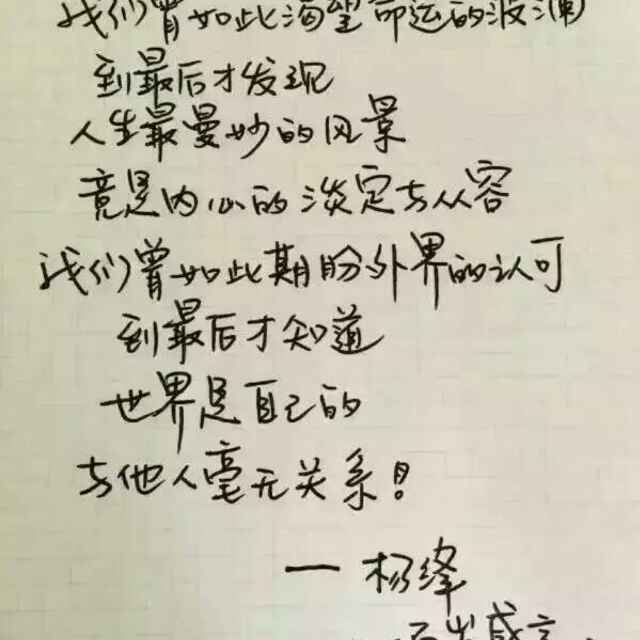 我们曾如此渴望命运的波澜
到最后才发现
人生最曼妙的风景
竟是内心的淡定与从容
我们曾如此期盼外界的认可
到最后才知道
世界是自己的
与他人毫无关系!
— 杨绛
感言